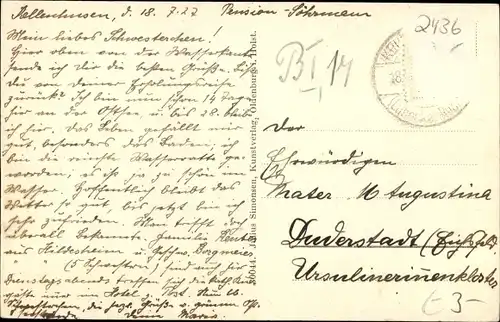 Kellenhusen, d. 18. 7. 27 Pension
Mein liebes Schwesterchen!
Hier oben von der Wasserkante
sende ich Dir die besten Grüße. Bist
Du von deiner Erholungsreise
zurück? Ich bin nun schon 14 Tage
hier an der Ostsee, u. bis 28. bleibe
ich hier. Das Leben gefällt mir
gut, besonders das Baden; ich
bin die reinste Wasserratte ge-
worden; es ist ja zu schön im
Wasser. Hoffentlich bleibt das
Wetter so gut, bis jetzt bin ich
sehr zufrieden. Man trifft doch
überall Bekannte. Familie
aus Hildesheim u. Geschw. Borgmeier
(5 Schwestern) sind auch hier
Dienstagsabends treffen sich die
gäste nur im Hotel
Grüße u.
Deine Maria
30044. Julius Simonsen, Kunstverlag, Oldenburg i. Holst.
2436
BI 14
Der
Ehrwürdigen
Mater M. Augustina
Duderstadt (Eichsfeld)
Ursulinerinenkloster
3-